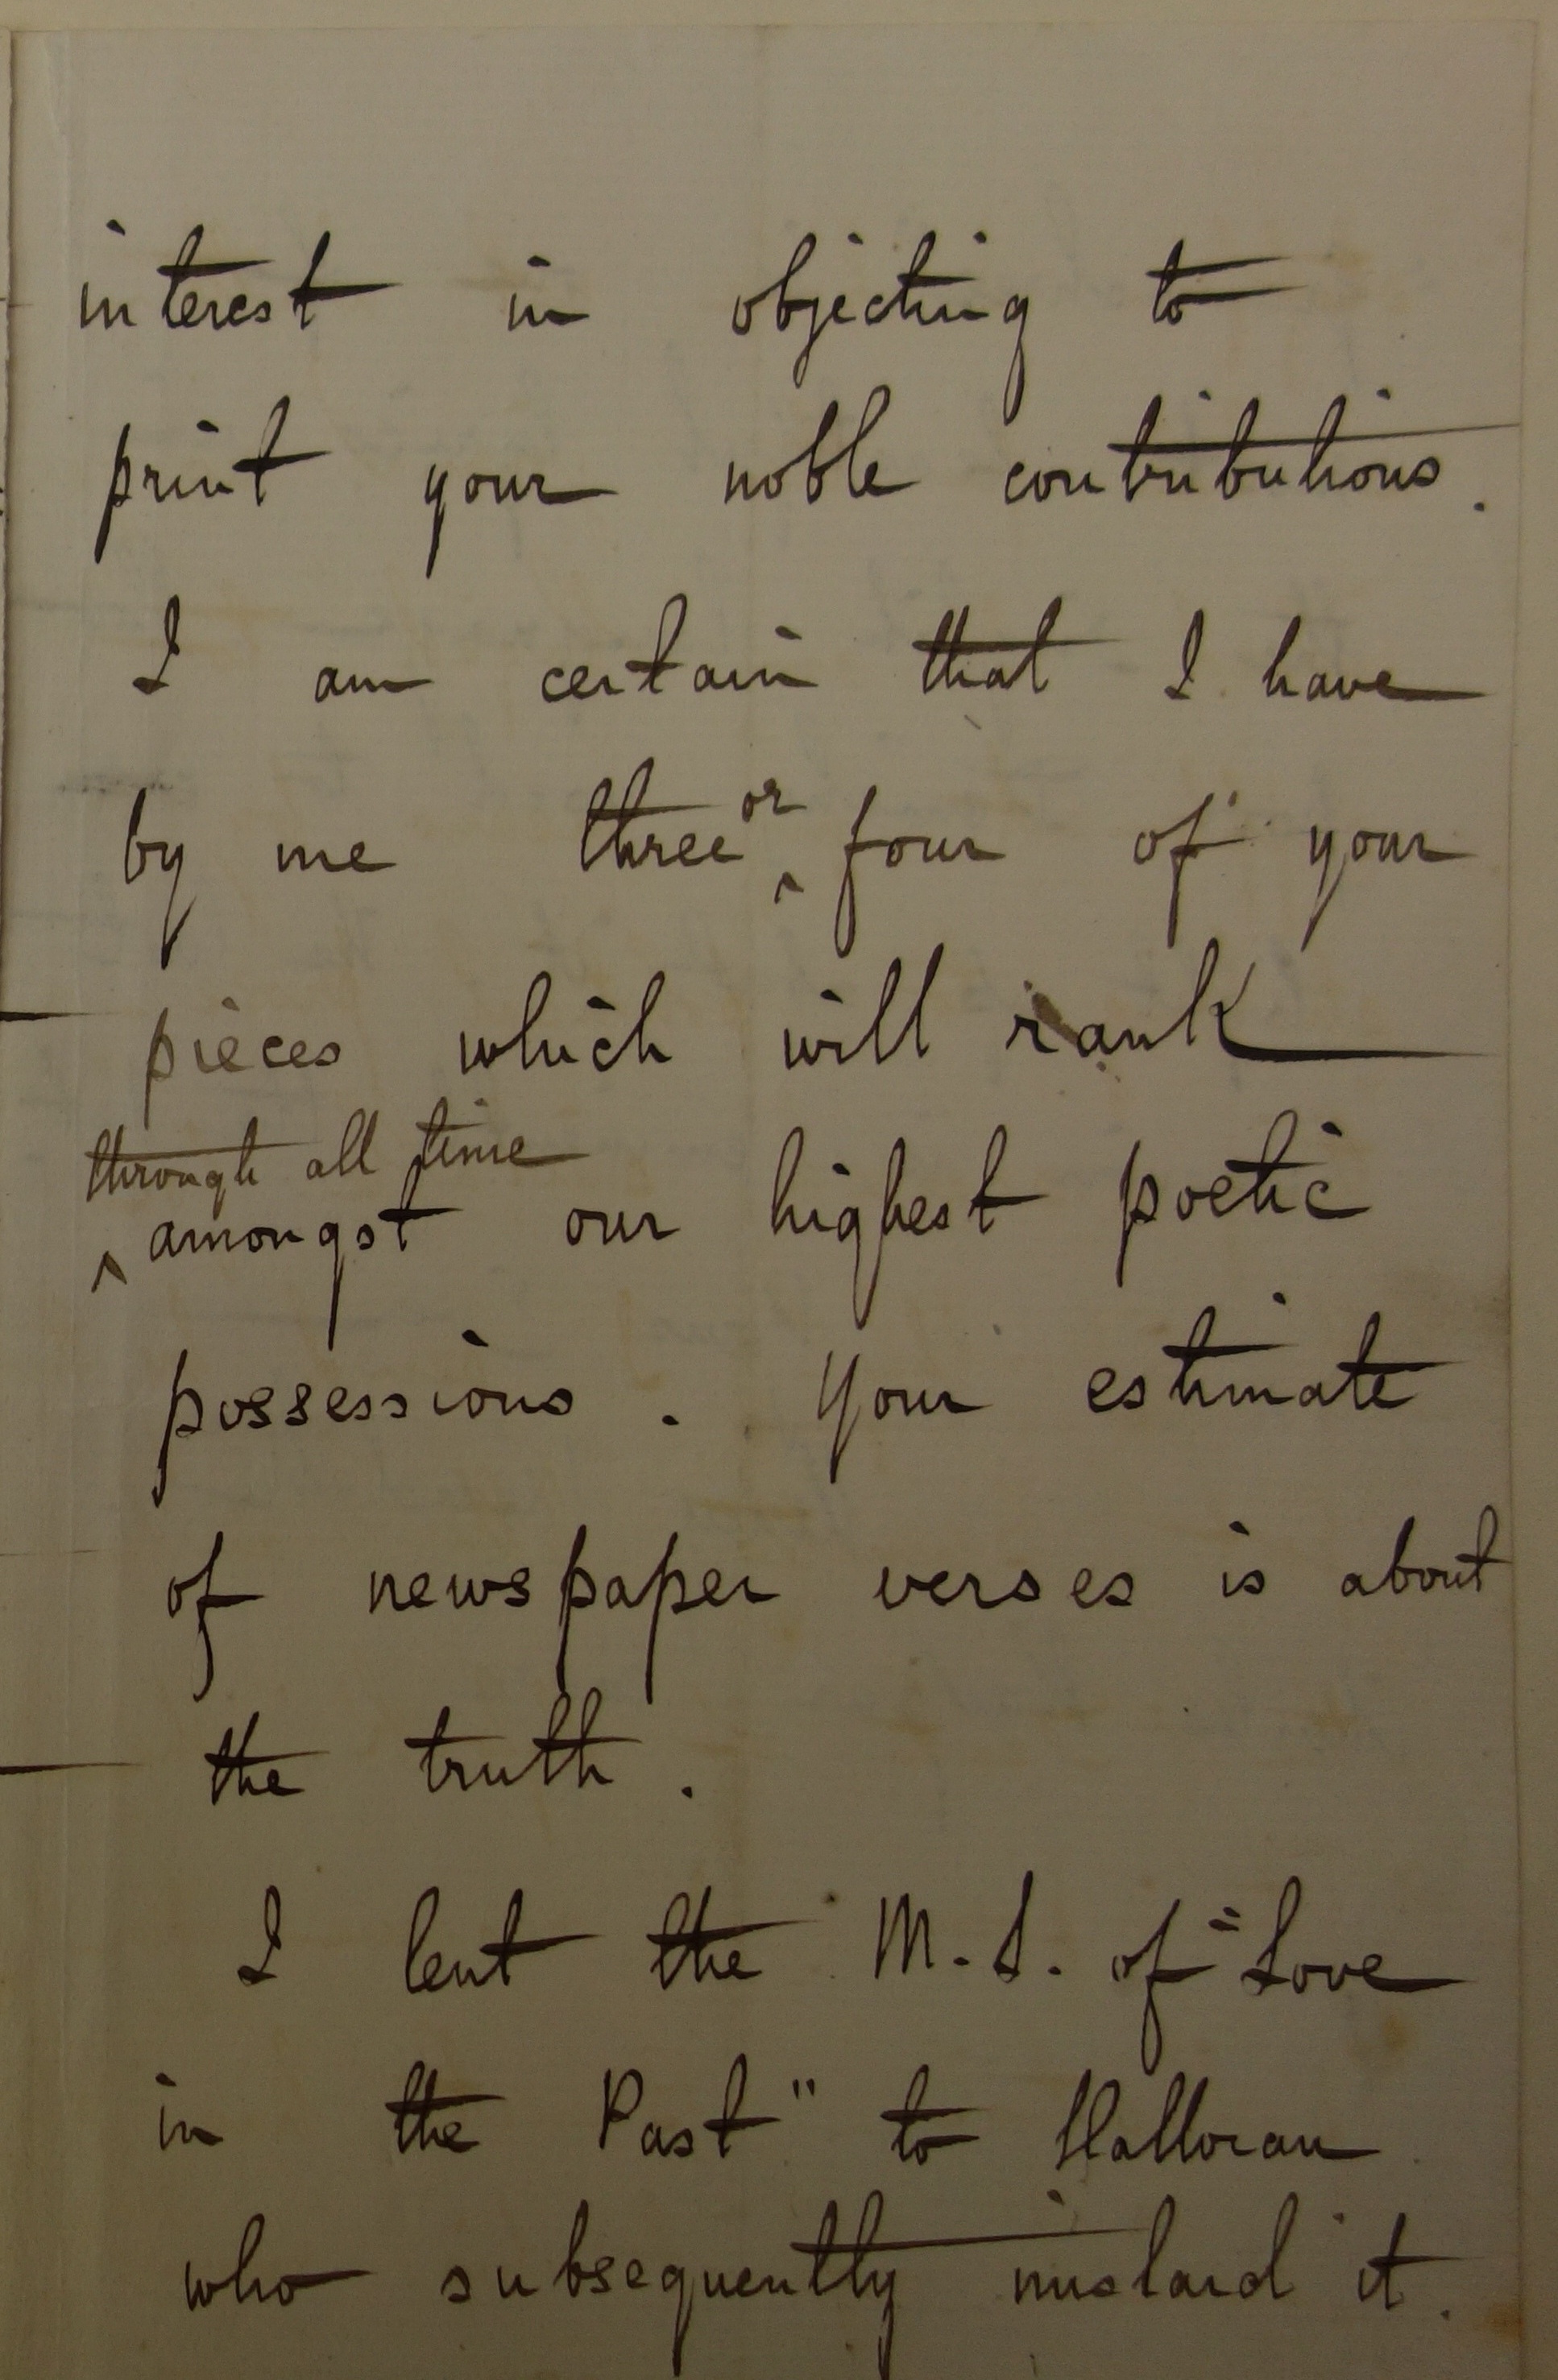 interest in objecting to
print your noble contributions.
I am certain that I have
by me three or four of your
pieces which will rank
through all time
amongst our highest poetic
possessions. Your estimate
of newspaper verses is about
the truth.
I lent the M.S. of "Love
in the Past" to Halloran
who subsequently mislaid it.